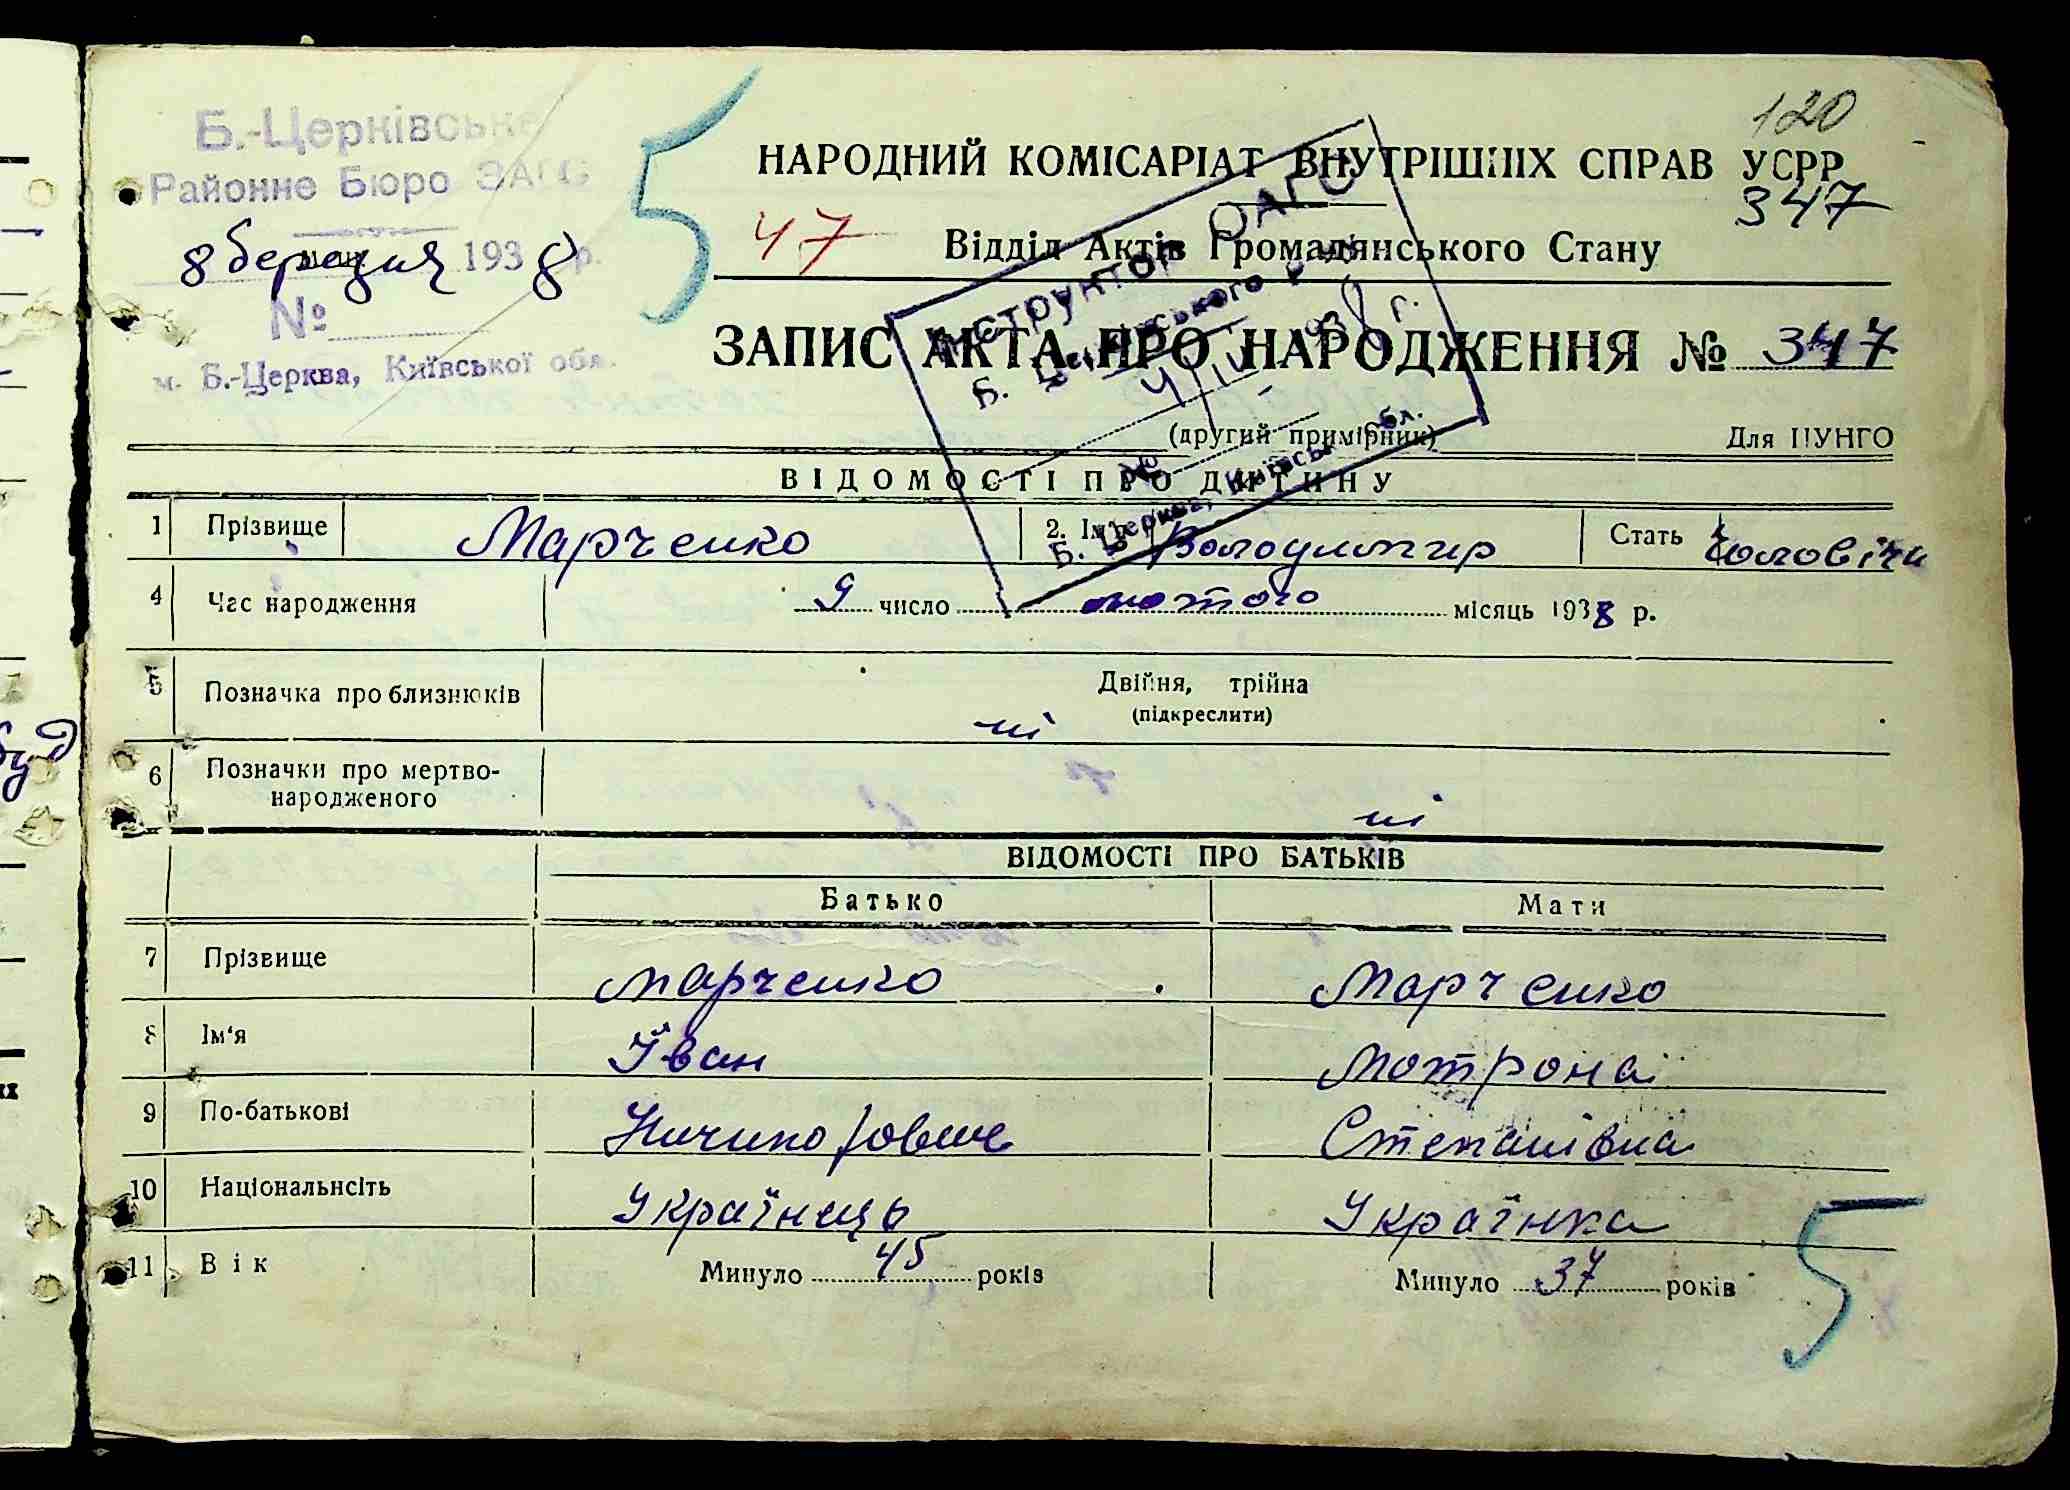 120
Б.-Церківське
Районне Бюро ЗАГС
8 березня 1938 р.
№
м. Б.-Церква, Київської обл.
5
НАРОДНИЙ КОМІСАРІАТ ВНУТРІШНІХ СПРАВ УСРР
347
47
Відділ Актів Громадянського Стану
ЗАПИС АКТА ПРО НАРОДЖЕННЯ № 347
(другий примірник)
Для ЦУНГО
ВІДОМОСТІ ПРО ДИТИНУ
1 Прізвище Марченко 2. Ім'я Володимир Стать Чоловіч
4 Час народження 9 число лютого місяць 1938 р.
5 Позначка про близнюків Двійня, трійна
(підкреслити)
ні
6 Позначки про мертво-
народженого
ні
ВІДОМОСТІ ПРО БАТЬКІВ
Батько Мати
7 Прізвище Марченко Марченко
8 Ім'я Іван Мотрона
9 По-батькові Ничипорович Степанівна
10 Національнсіть Українець Українка
11 Вік Минуло 45 років Минуло 37 років
5